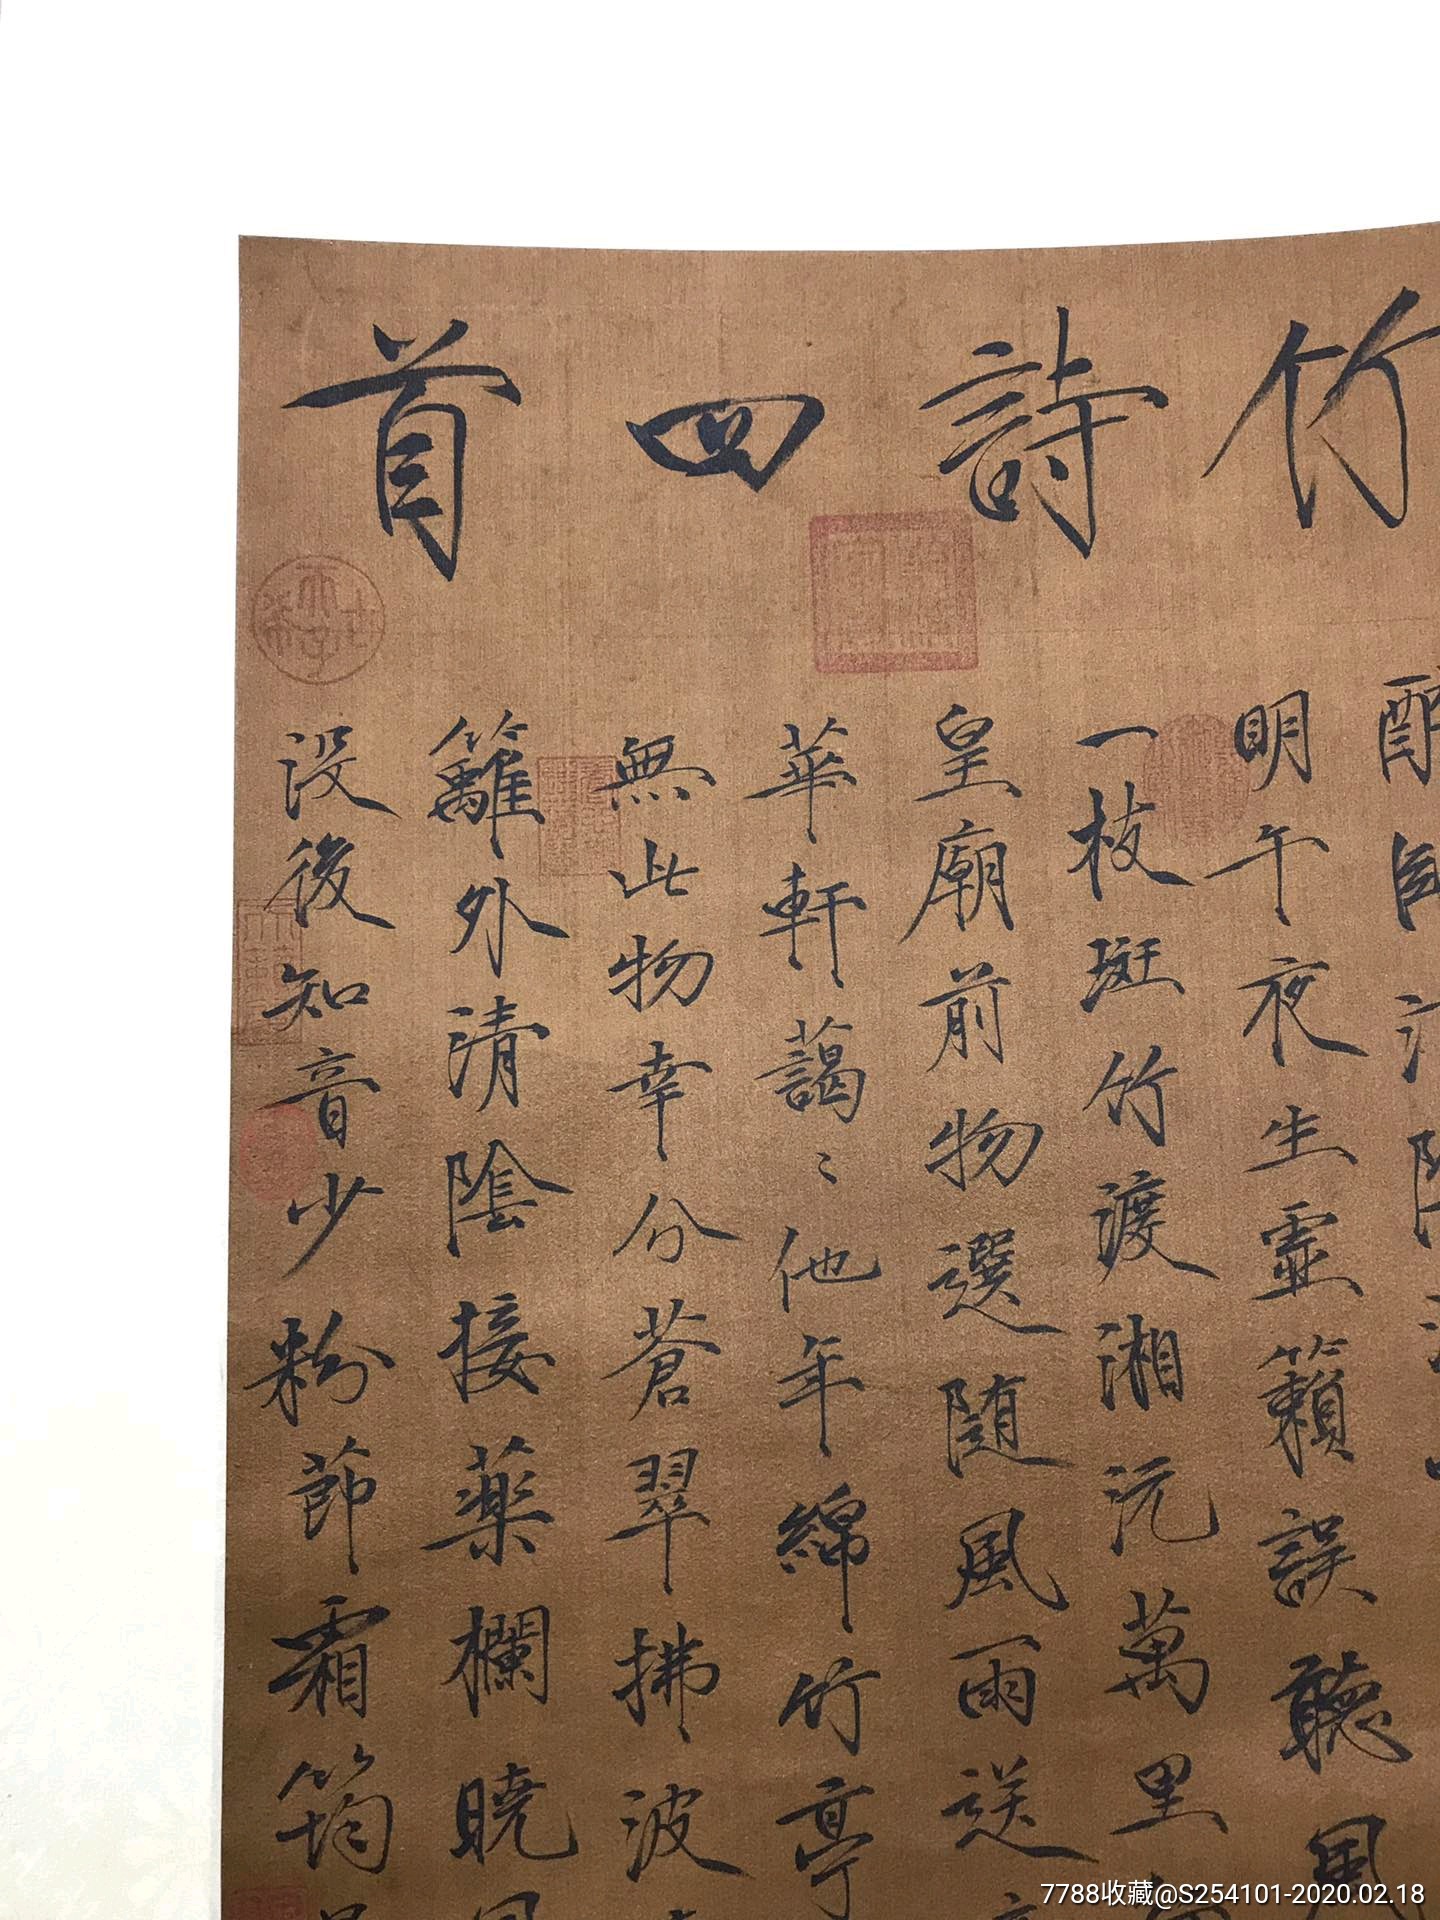 竹詩四首
醉
明午夜生靈籟誤聽風
一枝斑竹渡湘沅萬里
皇廟前物選随風雨送
華軒藹〻他年綿竹亭
無此物幸分蒼翠拂波
籬外清陰接藥欄曉風
没後知音少粉節霜筠
7788收藏@S254101-2020.02.18